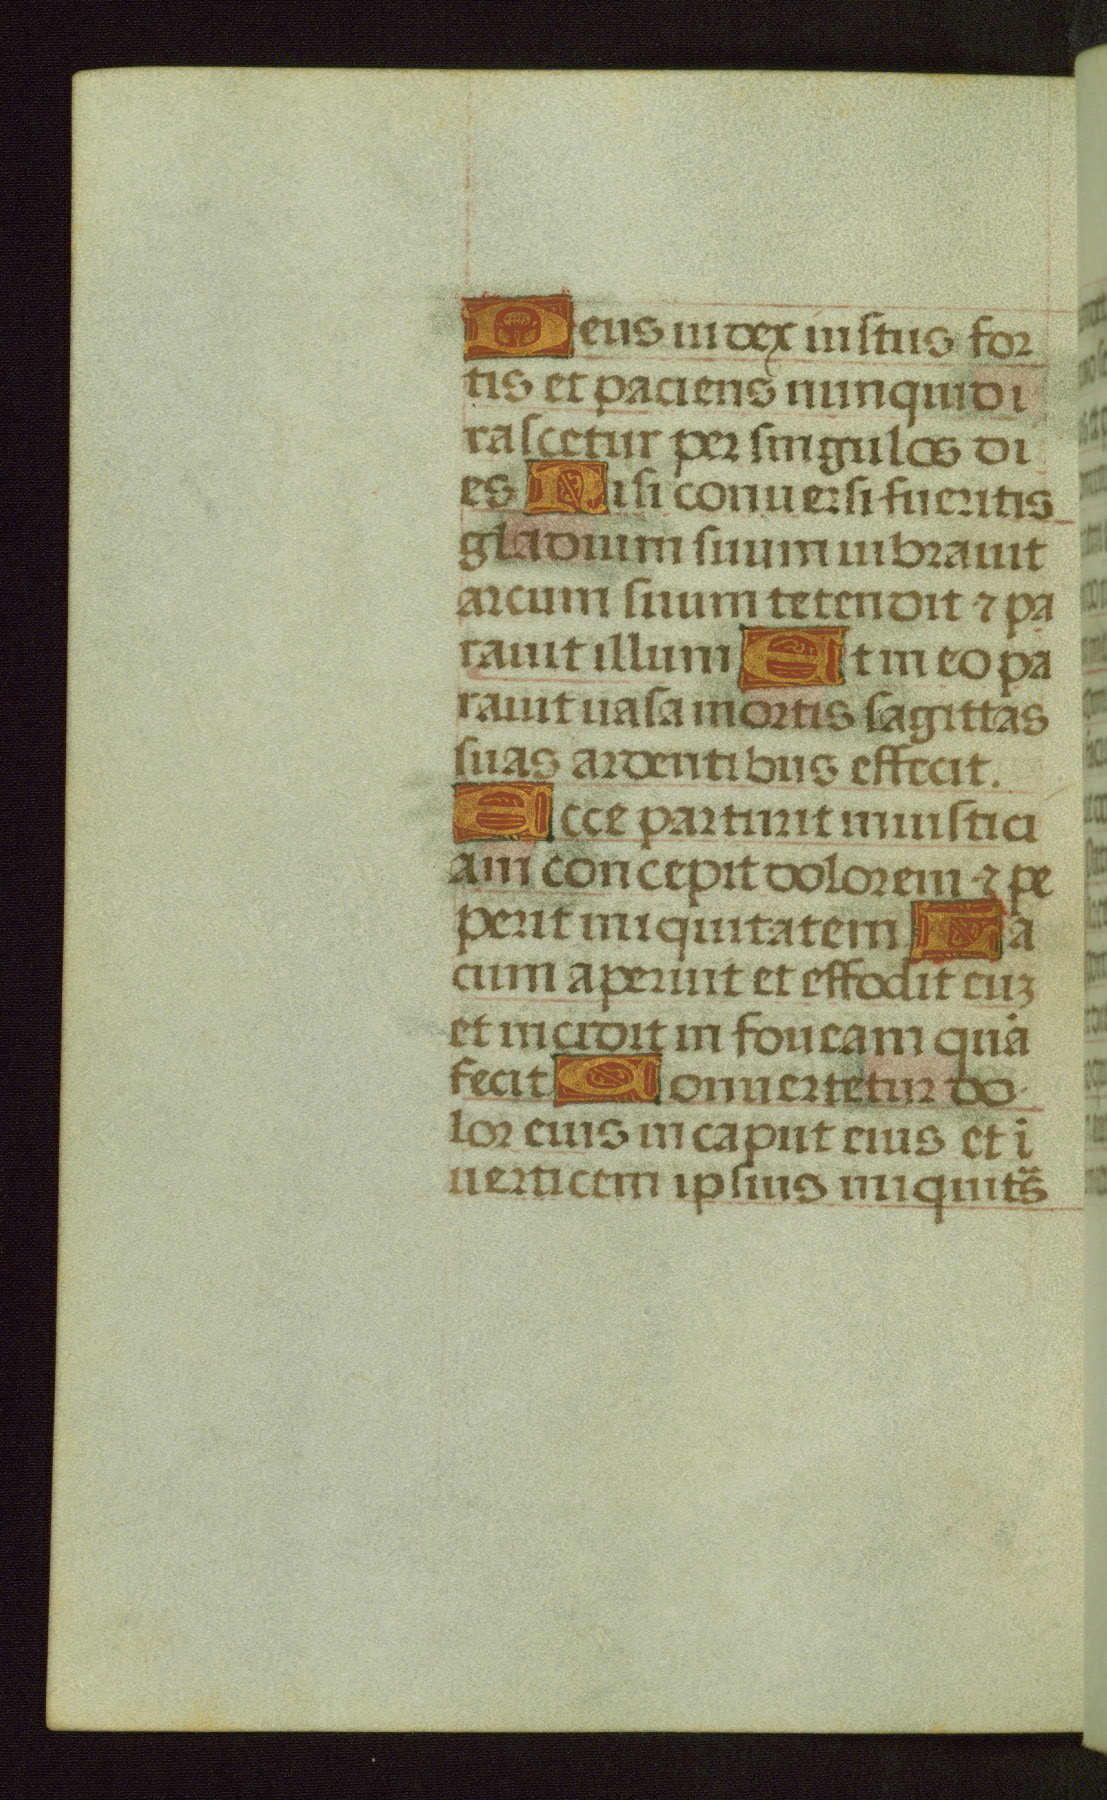 Deus iudex iustus for
tis et paciens nunquid i
rascetur per singulos di
es Nisi conuersi fueritis
gladium suum uibrauit
arcum suum tetendit ⁊ pa
rauit illum Et in eo pa
rauit uasa mortis sagittas
suas ardentibus effecit.
Ecce parturit iniustici
am concepit dolorem ⁊ pe
perit iniquitatem La
cum aperuit et effodit euʒ
et incidit in foueam quā
fecit Conuertetur do
lor eius in caput eius et ī
uerticem ipsius iniquit̄s